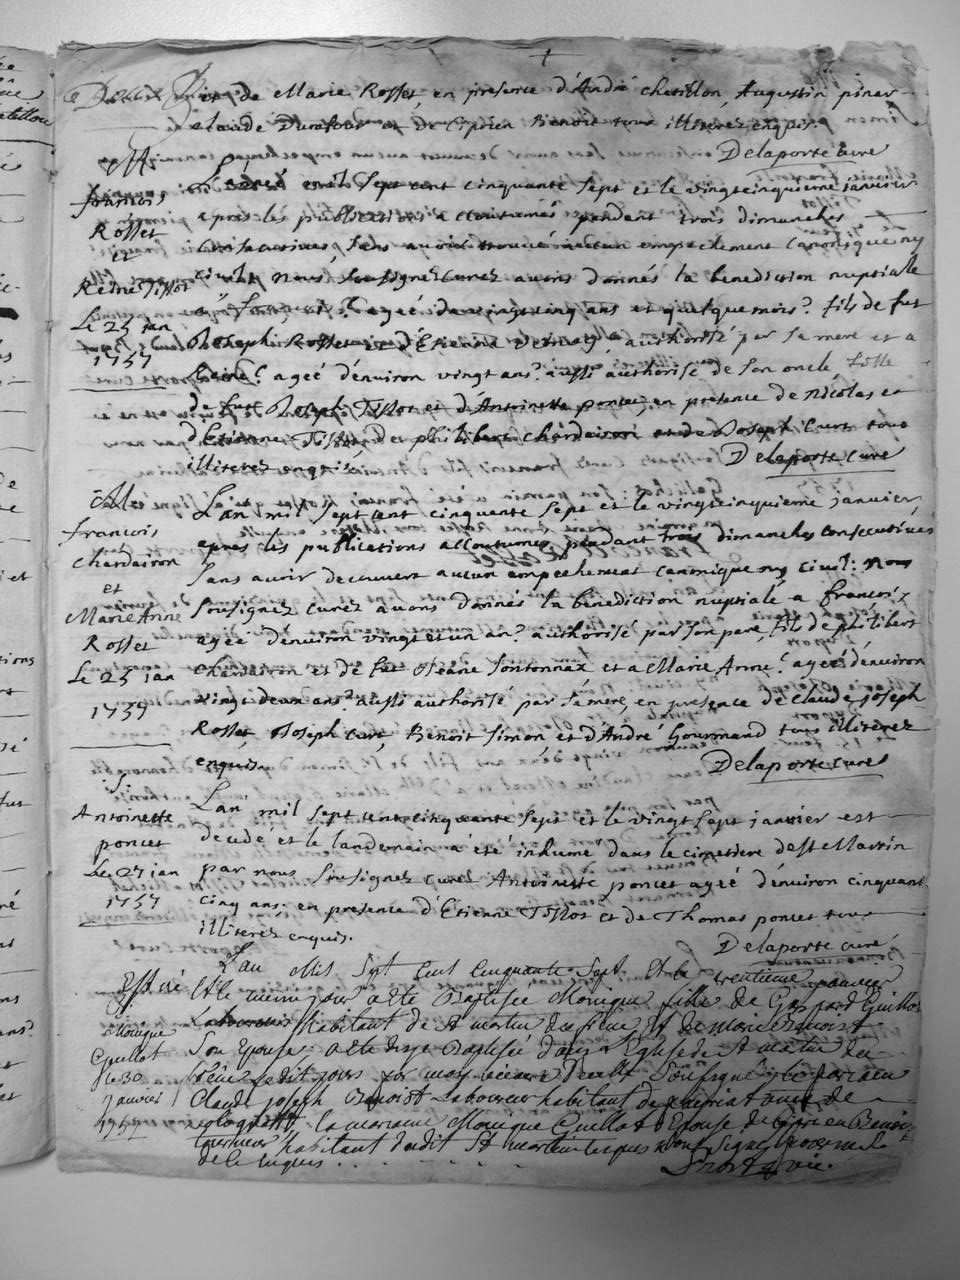 et de Marie Rosset, en presence d'André Chatillon, Augustin piner
claude Durafour et de Ciprien Benoit tous illiterez enquis.
Delaporte curé
françois
Rosset
et
Reine Tissot
Le 25 jan
1757
L'an mil sept cent cinquante sept et le vingtcinquieme janvier
apres les publications accoutumés pendant trois dimanches
consecutives, sans avoir trouvé aucun empechement canonique ny
civil, nous soussignez curez avons donnés la benediction nuptialle
a françois R. ageé de vingt cinq ans et quelque mois, fils de fut
Joseph Rosset et d'Etienna authorisé par sa mere et a
Reine T. ageé d'environ vingt ans aussi authorisé de son oncle, fille
de fut Joseph Tissot et d'Antoinette poncet, en presence de nicolas et
d'Etienne Tissot, de philibert chardairon et de Joseph Curt tous
illiterez enquis.
Delaporte curé
françois
chardairon
et
Marie Anne
Rosset
Le 25 jan
1757
L'an mil sept cent cinquante sept et le vingtcinquieme janvier
apres les publications accoutumes pendant trois dimanches consecutives
sans avoir decouvert aucun empechement canonique ny civil: nous
sousignez curez avons donnés la benediction nuptiale a françois
ageé d'environ vingt et un an authorisé par son pere, fils de philibert
chardairon et de fut Jeane fontonnax et a Marie Anne R. ageé d'environ
vingt deux ans aussi authorisé par sa mere, en presence de Claude joseph
Rosset, Joseph curt, Benoit simon et d'André Gourmand tous illiterez
enquis.
Delaporte curé
S.
Antoinette
poncet
Le 27 jan
1757
L'an mil sept cent cinquante sept et le vingt sept janvier est
decedé et le landemain a été inhumé dans le cimetiere de st Martin
par nous soussignez curez Antoinette poncet ageé d'environ cinquant
cinq ans: en presence d'Etienne Tissot et de Thomas poncet tous
illiterez enquis.
Delaporte curé
Monique
Guillot
le 30
janvier
1757
L'an Mil Sept Cent Cinquante Sept Et le trentieme janvier
Est née Et le meme jour a eté Baptisée Monique fille de Gaspard Guillot
Laboureur habitant de St martin du frene Et de marie Benoist
Son Epouse, a eté Baptisée dans l'Eglise de St martin du
frêne ledit jour par moy vicaire Soussigné le parrain
Claude joseph Benoist Laboureur habitant de
la maraine Monique Guillot Epouse de Ciprien Benoi
habitant dudit St martin lesquels n'ont signé
de ce enquis. . . . . . . .
vic.